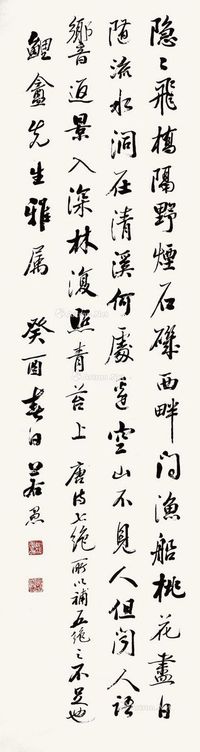 隐〻飞桥隔野烟石矶西畔问渔船桃花尽日
随流水洞在清溪何处边空山不见人但闻人语
响音返景入深林复照青苔上 唐诗七绝所以补五绝之不足也
鲤龛先生雅属 癸酉春日 若愚